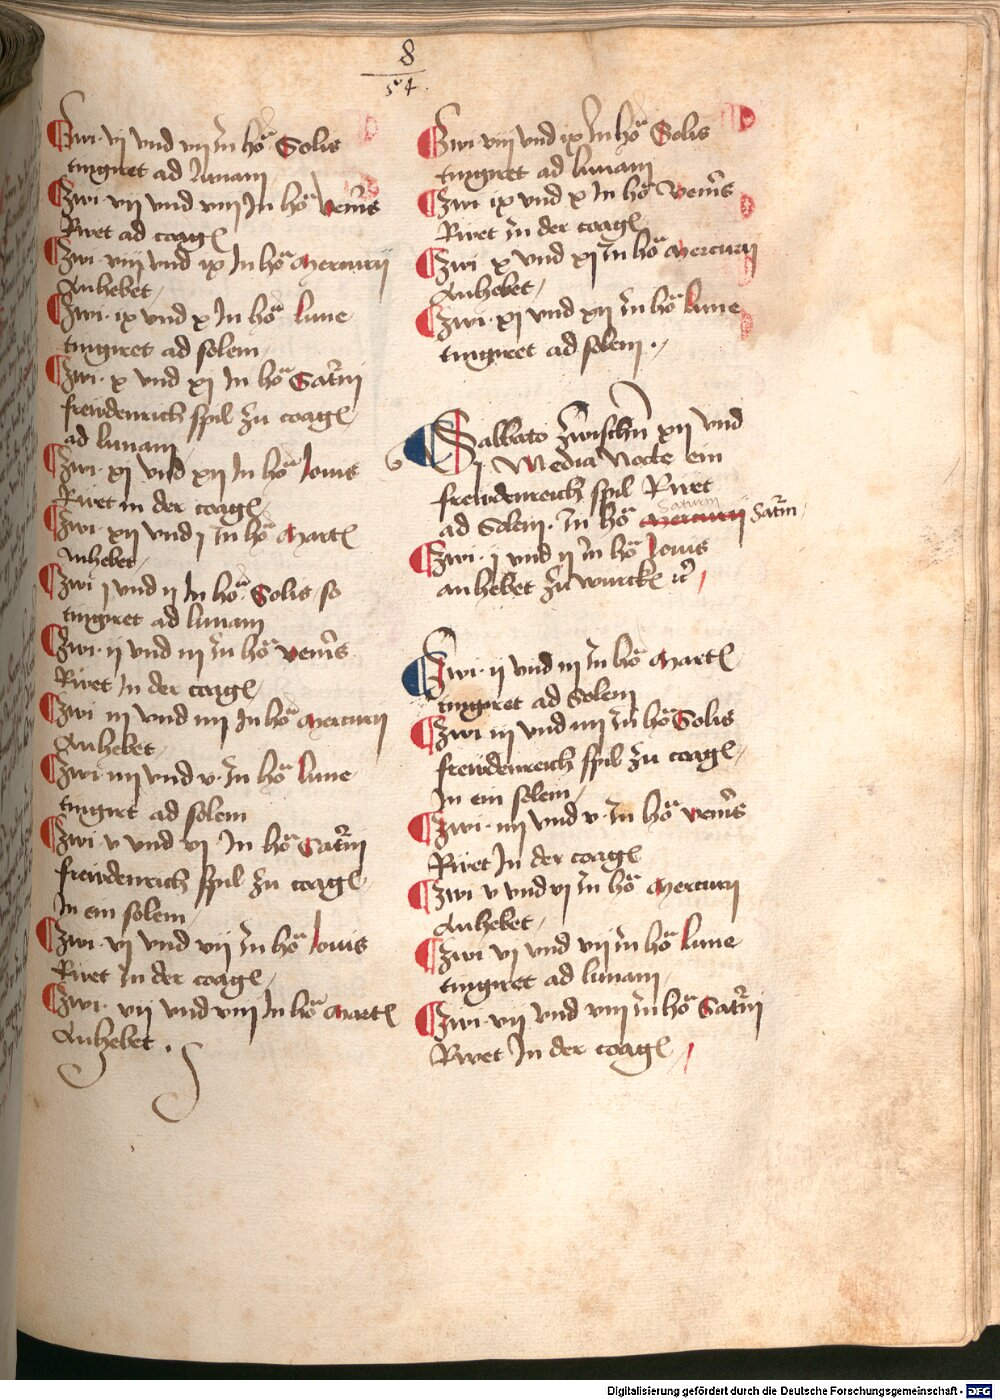 8
54.
Zwi· vj vnd vij in hor Solis
tingiret ad lunam
Zwi vij vnd viij In hor veneris
Rivet ad coagl
Zwi· viij vnd ix In hor Mercurij
Anhebet
Zwi· ix vnd x In hor lune
tingiret ad solem
Zwi· x vnd xj In hor Saturni
frewdenrich spil zu coagl
ad lunam
Zwi· xj vnd xij In hor Iouis
Rivet in der coagl
Zwi· xij vnd j In hor Martl
Anhebet
Zwi j vnd ij In hor Solis so
tingiret ad lunam
Zwi· ij vnd iij in hor veneris
Rivet In der coagl
Zwi iij vnd iiij In hor Mercurij
Anhebet
Zwi· iiij vnd v· In hor lune
tingiret ad solem
Zwi· v vnd vj In hor Saturni
frewdenrich spil zu coagl
In ein solem
Zwi· vj vnd vij in hor Iouis
Rivet In der coagl
Zwi· vij vnd viij In hor Martl
Anhebet ·
Zwi· viij vnd ix In hor Solis
tingiret ad lunam
Zwi ix vnd x In hor veneris
Rivet in der coagl
Zwi x vnd xj in hor Mercurij
Anhebet
Zwi· xj vnd xij in hor lune
tingiret ad solem ·
Sabbato zwischn xij vnd
j Media Nocte ein
frewdenreich spil Rivet
Saturni
ad Solem· In hor Mercurij Saturni
Zwi· j vnd ij in hor Iouis
anhebet zu wurckn etc
Zwi· ij vnd iij In hor Martl
tingiret ad Solem
Zwi iij vnd iiij in hor Solis
frewdenreich spil zu coagl
In ein solem
Zwi· iiij vnd v· In hor veneris
Rivet In der coagl
Zwi v vnd vj in hor Mercurij
Anhebet
Zwi vj vnd vij in hor lune
tingiret ad lunam
Zwi· vij vnd viij in hor Saturni
Rivet In der coagl
Digitalisierung gefördert durch die Deutsche Forschungsgemeinschaft - DFG